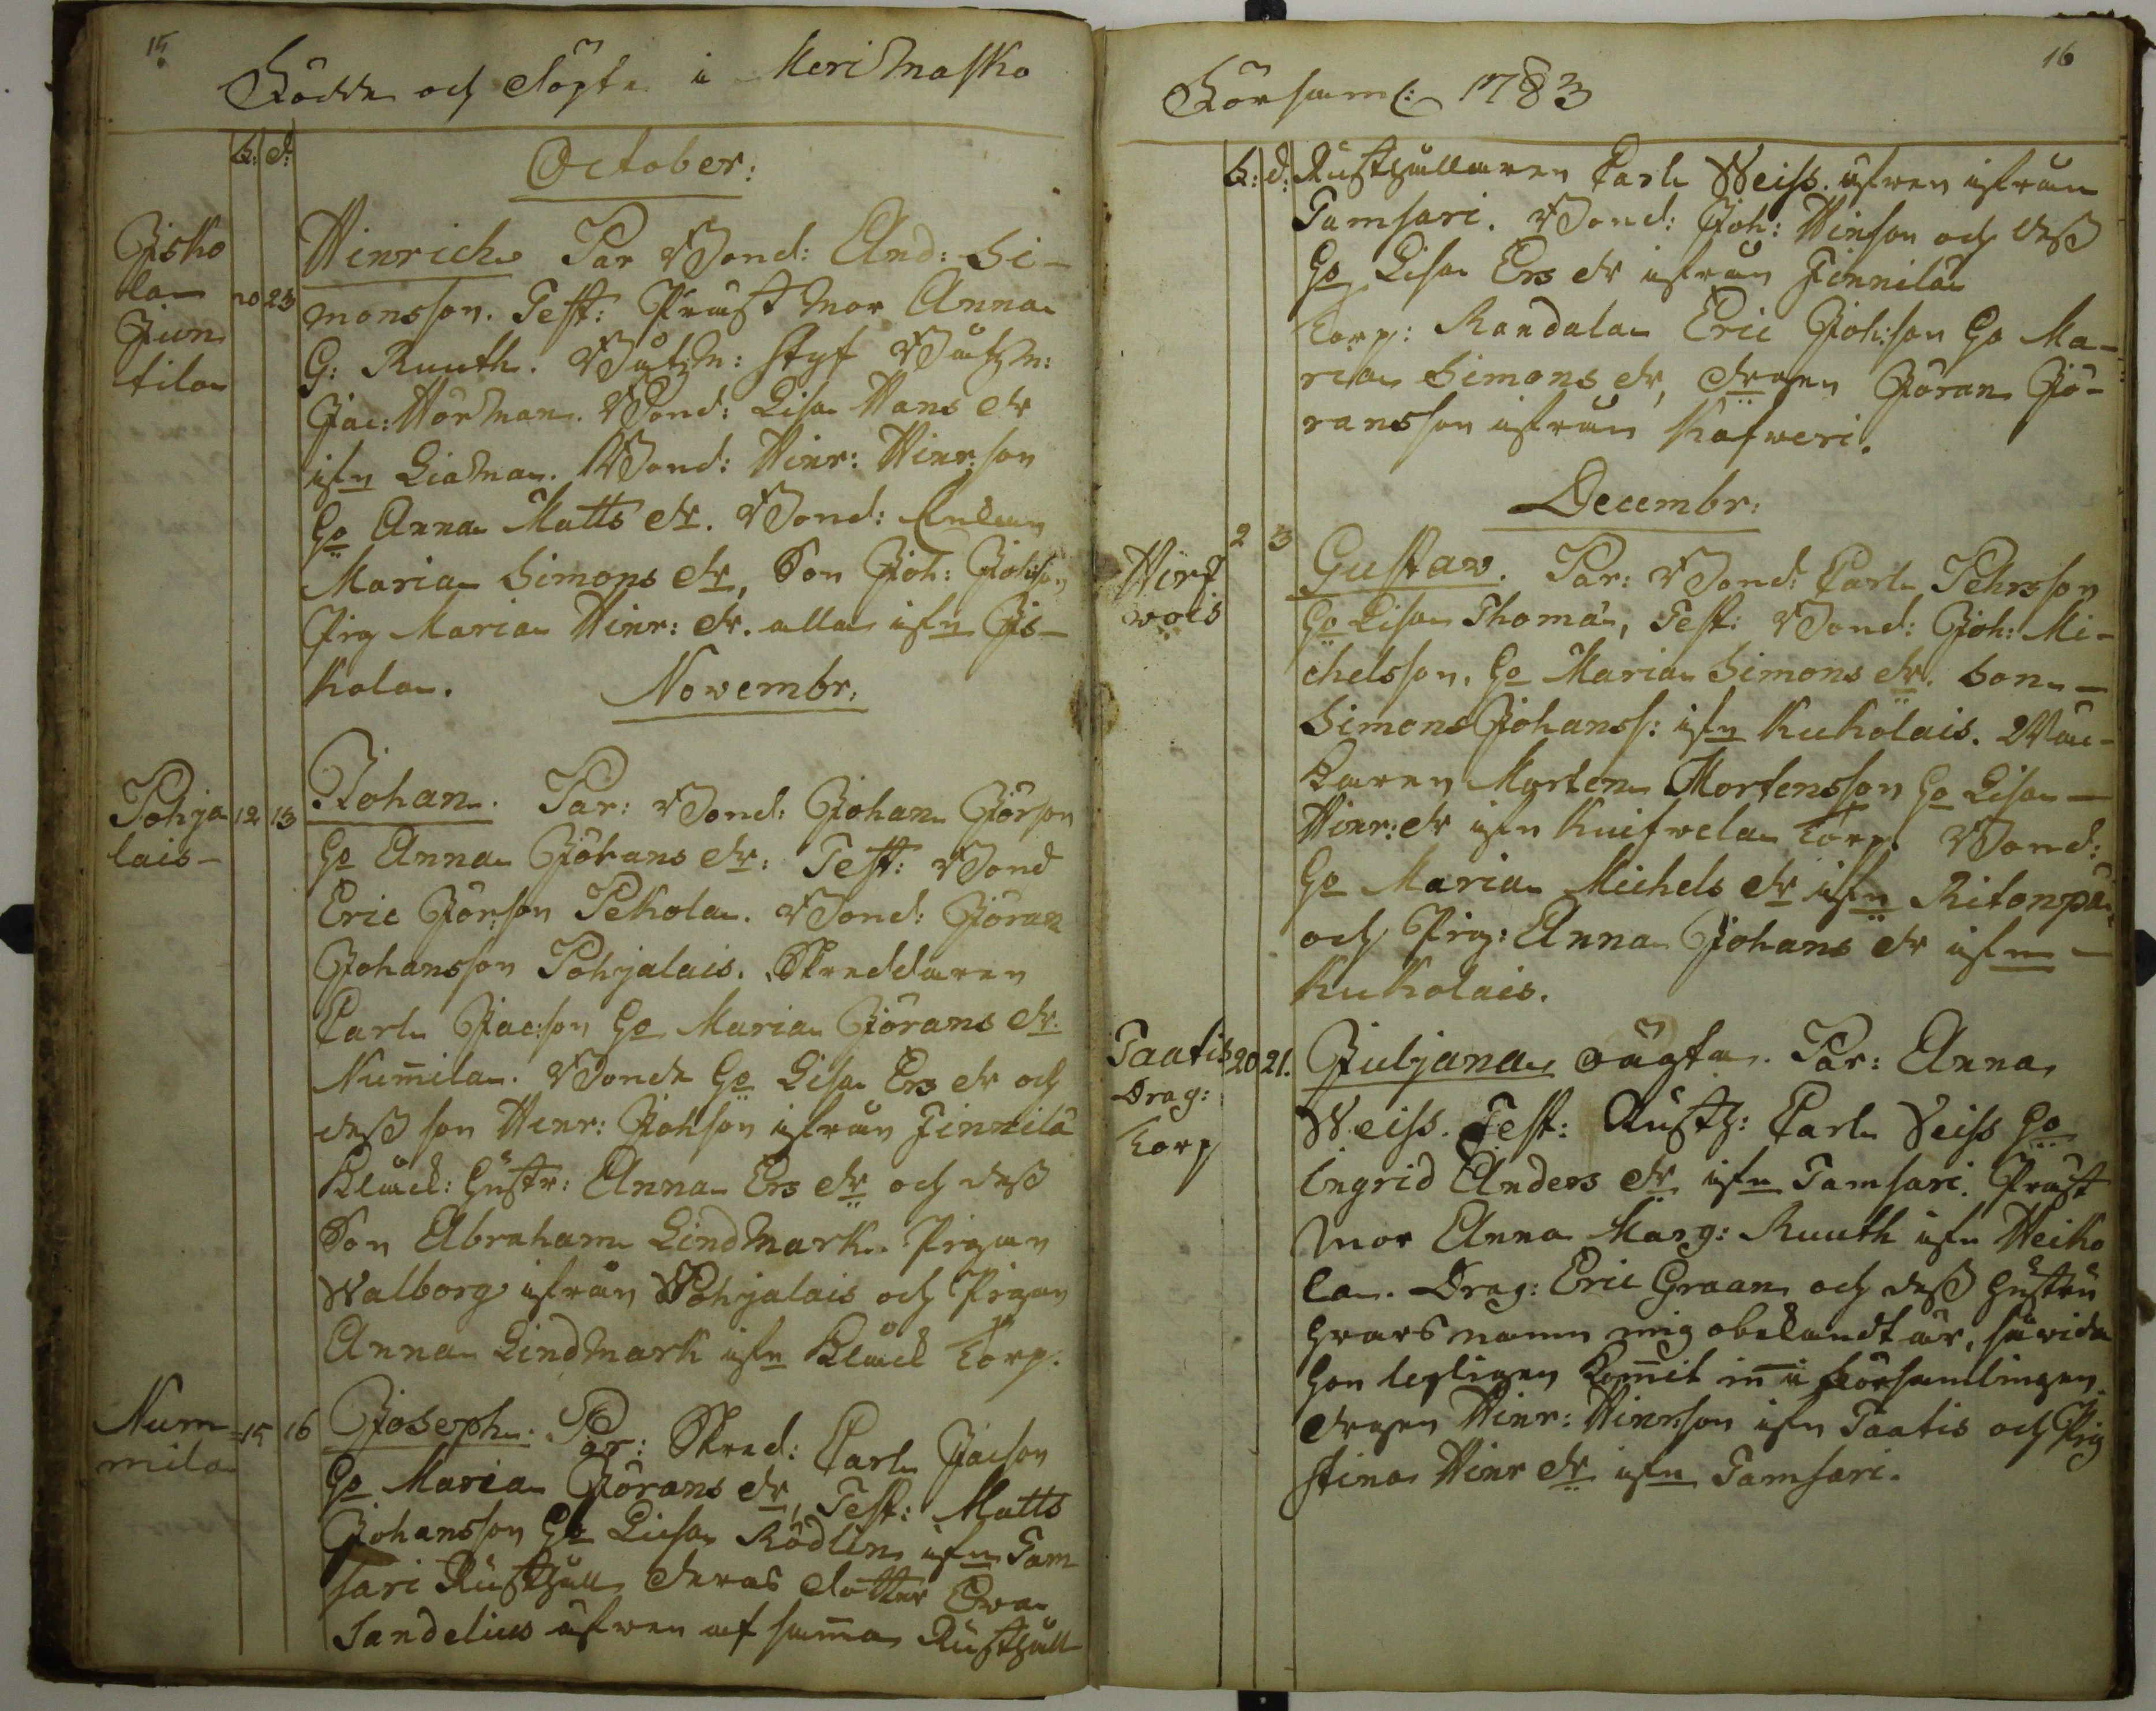 15
Födde och Döpte i Merimasko
October:
f: d:
Jisko
la
Jun
tila
20 23
Hinrich. Par Bond: And: Si-
monsson. Test: Prustmor Anna
G: Ruuth. Båtzm: Styf Båtzm:
Jac: Hörman. Bond: Lisa Hans dr
ifn Liama. Bond: Hinr: Hinr:son
Ho Anna Matts dr. Bond: Enkan
Maria Simons dr, Son Joh: Joh:son
Pig Maria Hinr: dr. alla ifn Jis-
kola.
Novembr:
Pohja
lais-
12 13
Johan. Par: Bond: Johan Jörson
Ho Anna Johans dr: Test: Bond
Eric Jörson Pekola. Bond: Göran
Johansson Pohjalais. Skreddaren
Carl Jac:son Ho Maria Görans dr.
Num̄ila. Bond Ho Lisa Ers dr och
dess son Hinr: Johson ifrån Finnilä
Klåck: Hustr: Anna Ers dr och dess
Son Abraham Lindmark. Pigan
Walborg ifrån Pohjalais och Pigan
Anna Lindmark ifn Klåck Torp.
Num-
mila
15 16
Joseph. Par: Skred: Carl Jacson
Ho Maria Görans dr, Test: Matts
Johansson Ho Liisa Rödlin ifn Tam
sari Rusthåll deras dotter Eva
Sandelius äfwen af sam̄a Rusthåll
16
Församl: 1783
f: d:
Rusthållaren Carl Weiss. äfwen ifrån
Tamsari. Bond: Joh: Hinson och dess
Ho Lisa Ers dr ifrån Finnilä
Torp: Randala Eric Joh:son Ho Ma-
ria Simons dr, drägen Göran Jö-
ransson ifrån Kafweri.
Decembr:
Hirf
wois
2 3
Gustav. Par: Bond: Carl Pehrsson
Ho Lisa Thoma, Test: Bond: Joh: Mi-
chelsson, Ho Maria Simons dr. Son
Simons Johanss: ifn Kukolais. Wäf-
karen Morten Mortensson Ho Lisa
Hinr: dr ifn Kuifwela Torp. Bond:
Ho Maria Michels dr ifn Ritonpä
och Pig: Anna Johans dr ifn
Kukolais.
Taatis
Drag:
Torp
20 21.
Juljana oägta. Par: Anna
Weiss. Test: Rusth: Carl Weiss Ho
Ingrid Anders dr ifn Tamsari. Prust
mor Anna Marg: Ruuth ifn Heiko
la. Drag: Eric Graan och dess hustru
hvars namn mig obekandt är, såvida
hon nyligen kom̄it in i församlingen
drägen Hinr: Hinrson ifn Taatis och Pig
Stina Hinr dr ifn Tamsari.